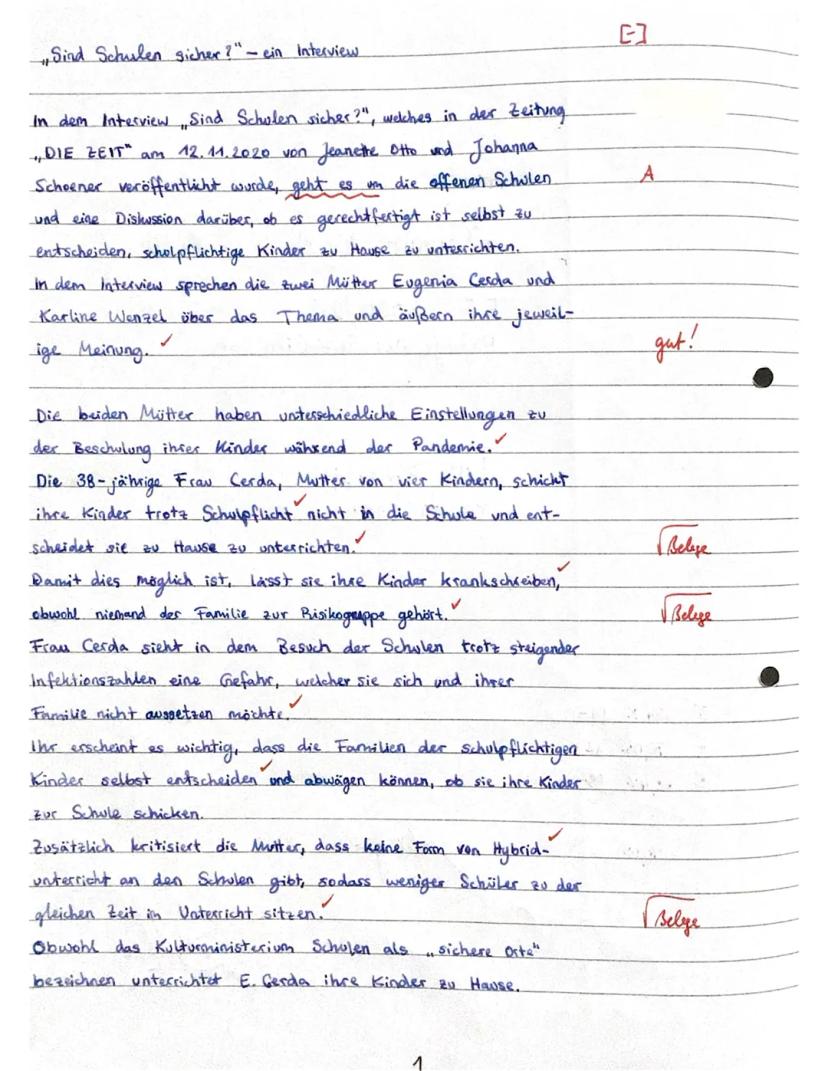 „Sind Schulen sicher?" – ein Interview [-]
In dem Interview „Sind Schulen sicher?", welches in der Zeitung
„DIE ZEIT" am 12.11.2020 von Jeanette Otto und Johanna
Schoener veröffentlicht wurde, geht es um die offenen Schulen A
und eine Diskussion darüber, ob es gerechtfertigt ist selbst zu
entscheiden, schulpflichtige Kinder zu Hause zu unterrichten.
In dem Interview sprechen die zwei Mütter Eugenia Cerda und
Karline Wenzel über das Thema und äußern ihre jeweil-
ige Meinung. ✓ gut!
Die beiden Mütter haben unterschiedliche Einstellungen zu
der Beschulung ihrer Kinder während der Pandemie. ✓
Die 38-jährige Frau Cerda, Mutter von vier Kindern, schickt
ihre Kinder trotz Schulpflicht ✓ nicht in die Schule und ent-
scheidet sie zu Hause zu unterrichten. ✓ √Belege
Damit dies möglich ist, lässt sie ihre Kinder krankschreiben, ✓
obwohl niemand der Familie zur Risikogruppe gehört. ✓ √Belege
Frau Cerda sieht in dem Besuch der Schulen trotz steigender
Infektionszahlen eine Gefahr, welcher sie sich und ihrer
Familie nicht aussetzen möchte. ✓
Ihr erscheint es wichtig, dass die Familien der schulpflichtigen
Kinder selbst entscheiden ✓ und abwägen können, ob sie ihre Kinder
zur Schule schicken.
Zusätzlich kritisiert die Mutter, dass keine Form von Hybrid- ✓
unterricht an den Schulen gibt, sodass weniger Schüler zu der
gleichen Zeit im Unterricht sitzen. ✓ √Belege
Obwohl das Kultusministerium Schulen als „sichere Orte"
bezeichnen unterrichtet E. Cerda ihre Kinder zu Hause.
1